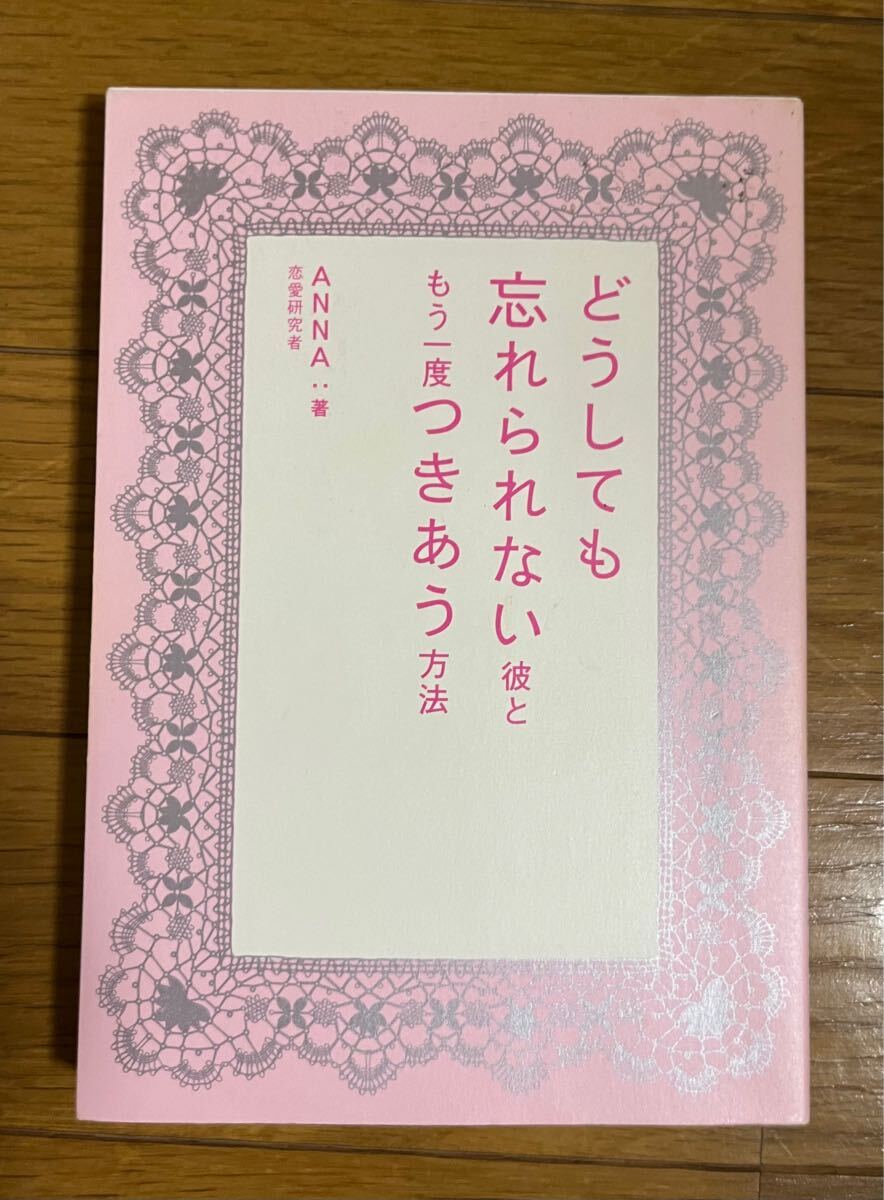 どうしても
忘れられない彼と
もう一度つきあう方法
ANNA:著
恋愛研究者